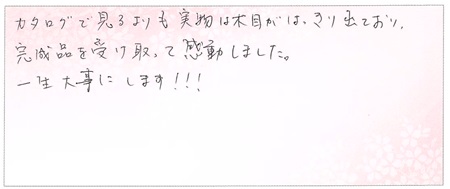 カタログで見るよりも実物は木目がはっきり出ており、
完成品を受け取って感動しました。
一生大事にします!!!